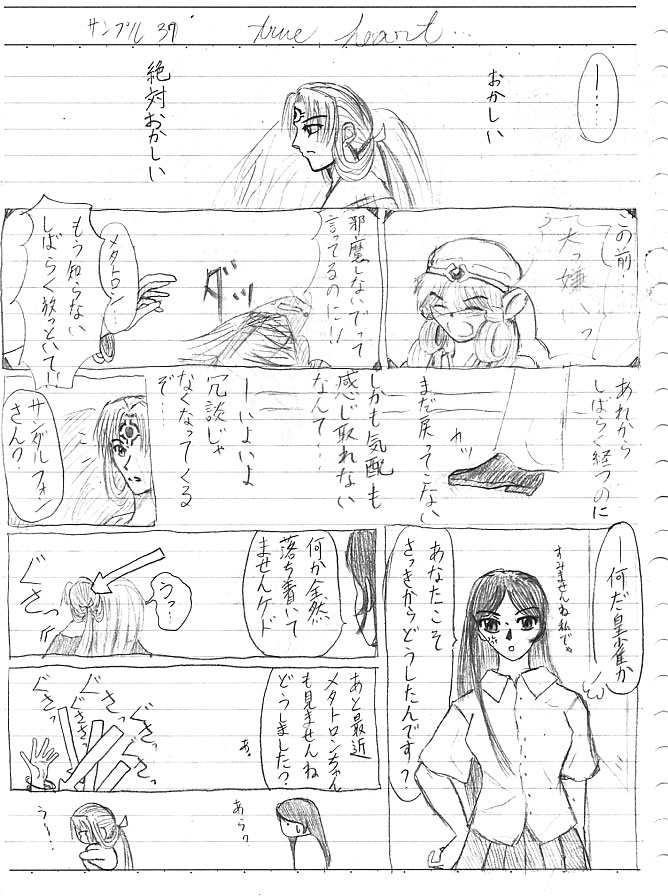 サンプル 37
true heart...
ー……
おかしい
絶対おかしい
この前
大っ嫌いっ
邪魔しないでって
言ってるのに!!
ダッ
メタトロン…
もう知らない
しばらく放っといて!!
あれから
しばらく経つのに
まだ戻ってこない
カッ
しかも気配も
感じ取れない
なんて…
ーいよいよ
冗談じゃ
なくなってくる
ぞ…
サンダルフォン
さん?
ー何だ皇雀か
すみませんね私で。
あなたこそ
さっきからどうしたんです?
何か全然
落ち着いて
ませんケド
うっ…
ぐさっ
あと最近
メタトロンちゃん
も見ませんね
どうしました?
あ。
ぐさっ
ぐさっ
ぐさっ
ぐさっ
あらっ
う〜…